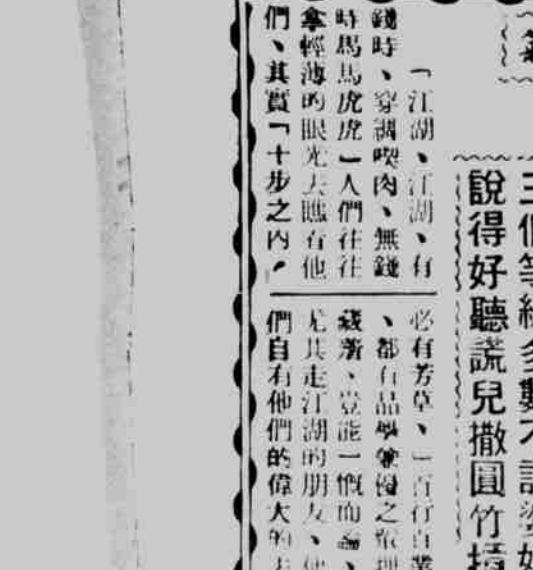 三個等級多數不
說得好聽謊兒撒圓竹槓
「江湖、江湖、有
錢時、穿綢喫肉、無錢
時馬馬虎虎」人們往往
拿輕薄的眼光去瞧看他
們、其實「十步之內、
必有芳草、」百行百業
、都有品學兼優之
藏、豈能一慨而論、
尤其走江湖的朋友、他
們自有他們的偉大的